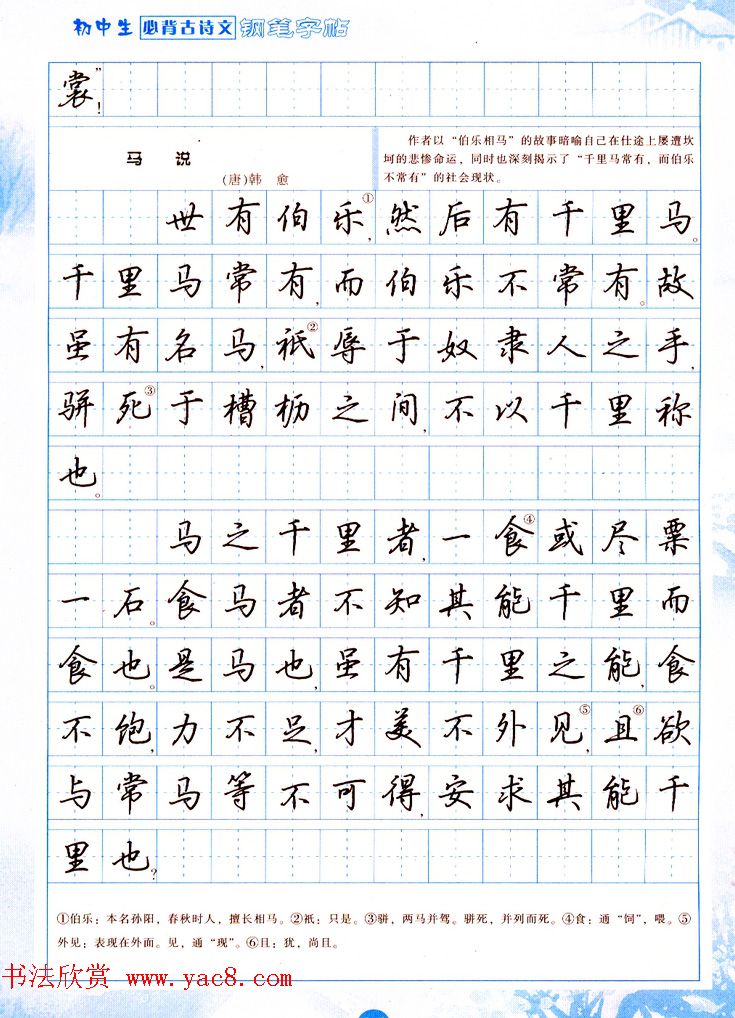 初中生 必背古诗文 钢笔字帖
裳”！
马 说
（唐）韩 愈
作者以“伯乐相马”的故事暗喻自己在仕途上屡遭坎
坷的悲惨命运，同时也深刻揭示了“千里马常有，而伯乐
不常有”的社会现状。
世有伯乐①，然后有千里马。
千里马常有，而伯乐不常有。故
虽有名马，祇②辱于奴隶人之手，
骈死③于槽枥之间，不以千里称
也。
马之千里者，一食④或尽粟
一石。食马者不知其能千里而
食也。是马也，虽有千里之能，食
不饱，力不足，才美不外见⑤，且⑥欲
与常马等不可得，安求其能千
里也？
①伯乐：本名孙阳，春秋时人，擅长相马。②祇：只是。③骈，两马并驾。骈死，并列而死。④食：通“饲”，喂。⑤
外见：表现在外面。见，通“现”。⑥且：犹，尚且。
书法欣赏 www.yac8.com